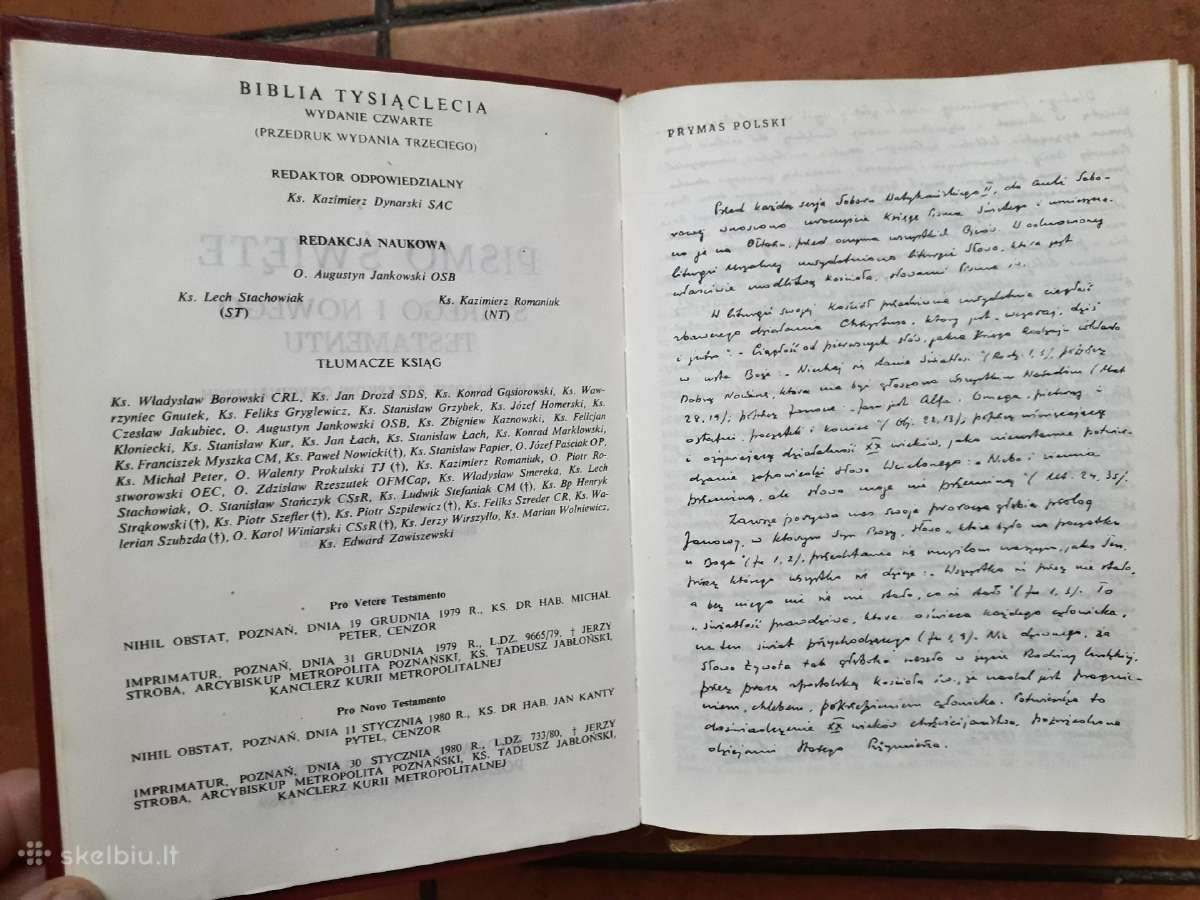 BIBLIA TYSIĄCLECIA
WYDANIE CZWARTE
(PRZEDRUK WYDANIA TRZECIEGO)
REDAKTOR ODPOWIEDZIALNY
Ks. Kazimierz Dynarski SAC
REDAKCJA NAUKOWA
O. Augustyn Jankowski OSB
Ks. Lech Stachowiak Ks. Kazimierz Romaniuk
(ST) (NT)
TŁUMACZE KSIĄG
Ks. Władysław Borowski CRL, Ks. Jan Drozd SDS, Ks. Konrad Gąsiorowski, Ks. Waw-
rzyniec Gnutek, Ks. Feliks Gryglewicz, Ks. Stanisław Grzybek, Ks. Józef Homerski, Ks.
Czesław Jakubiec, O. Augustyn Jankowski OSB, Ks. Zbigniew Kaznowski, Ks. Felicjan
Kłoniecki, Ks. Stanisław Kur, Ks. Jan Łach, Ks. Stanisław Łach, Ks. Konrad Markłowski,
Ks. Franciszek Myszka CM, Ks. Paweł Nowicki(†), Ks. Stanisław Papier, O. Józef Paściak OP,
Ks. Michał Peter, O. Walenty Prokulski TJ (†), Ks. Kazimierz Romaniuk, O. Piotr Ro-
stworowski OEC, O. Zdzisław Rzeszutek OFMCap, Ks. Władysław Smereka, Ks. Lech
Stachowiak, O. Stanisław Stańczyk CSsR, Ks. Ludwik Stefaniak CM (†), Ks. Bp Henryk
Strąkowski (†), Ks. Piotr Szefler (†), Ks. Piotr Szpilewicz (†), Ks. Feliks Szreder CR, Ks. Wa-
lerian Szubzda (†), O. Karol Winiarski CSsR (†), Ks. Jerzy Wirszyłło, Ks. Marian Wolniewicz,
Ks. Edward Zawiszewski
Pro Vetere Testamento
NIHIL OBSTAT, POZNAŃ, DNIA 19 GRUDNIA 1979 R., KS. DR HAB. MICHAŁ
PETER, CENZOR
IMPRIMATUR, POZNAŃ, DNIA 31 GRUDNIA 1979 R., L.DZ. 9665/79, † JERZY
STROBA, ARCYBISKUP METROPOLITA POZNAŃSKI, KS. TADEUSZ JABŁOŃSKI,
KANCLERZ KURII METROPOLITALNEJ
Pro Novo Testamento
NIHIL OBSTAT, POZNAŃ, DNIA 11 STYCZNIA 1980 R., KS. DR HAB. JAN KANTY
PYTEL, CENZOR
IMPRIMATUR, POZNAŃ, DNIA 30 STYCZNIA 1980 R., L.DZ. 733/80, † JERZY
STROBA, ARCYBISKUP METROPOLITA POZNAŃSKI, KS. TADEUSZ JABŁOŃSKI,
KANCLERZ KURII METROPOLITALNEJ
PRYMAS POLSKI
Przed każdą sesją Soboru Watykańskiego II, do auli Sobo-
rowej wnoszono uroczyście Księgę Pisma Świętego i umieszcza-
no ją na Ołtarzu, przed oczyma wszystkich Ojców. W odnowionej
liturgii Mszalnej uwydatniono liturgię Słowa, która jest
właściwie modlitwą Kościoła, słowami Pisma św.
W liturgii swojej Kościół uwydatnia ciągłość
zbawczego działania Chrystusa, który jest „wczoraj, dziś
i jutro". Ciągłość od pierwszych słów, jakie Księga Rodzaju wkłada
w usta Boga: „Niechaj się stanie światłość" (Rodz. 1, 3), poprzez
Dobrą Nowinę, która ma być głoszona wszystkim Narodom (Mat
28, 19), poprzez Janowe: „Jam jest Alfa i Omega, pierwszy i
ostatni, początek i koniec" (Obj. 22, 13), poprzez
i ożywiającą działalność XX wieków, jako nieustanne potwier-
dzenie zapowiedzi Słowa Wcielonego: „Niebo i ziemia
przeminą, ale słowa moje nie przeminą" (Mt. 24, 35).
Zawsze porywa nas swoją proroczą głębią prolog
Janowy, w którym Syn Boży, Słowo, „które było na początku
u Boga" (Jo 1, 2), przedstawia się myślom naszym, jako Ten,
przez którego wszystko się dzieje: „Wszystko się przez nie stało,
a bez niego nic się nie stało, co się stało" (Jo 1, 3). To
„światłość prawdziwa, która oświeca każdego człowieka,
na ten świat przychodzącego" (Jo 1, 9). Nic dziwnego, że
Słowo Żywota tak głęboko weszło w życie Rodziny ludzkiej,
przez pracę apostolską Kościoła św., że nadal jest pragnie-
niem, chlebem, pokrzepieniem człowieka. Potwierdza to
doświadczenie XX wieków chrześcijaństwa, poprzedzone
dziejami Starego Przymierza.
skelbiu.lt